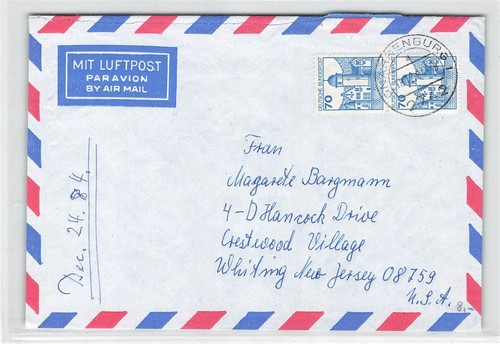 MIT LUFTPOST
PAR AVION
BY AIR MAIL
DEUTSCHE BUNDESPOST
70
70
Frau
Magarete Bargmann
4-D Hancock Drive
Crestwood Village
Whiting New Jersey 08759
U.S.A.
Dec. 24. 84.
8,-